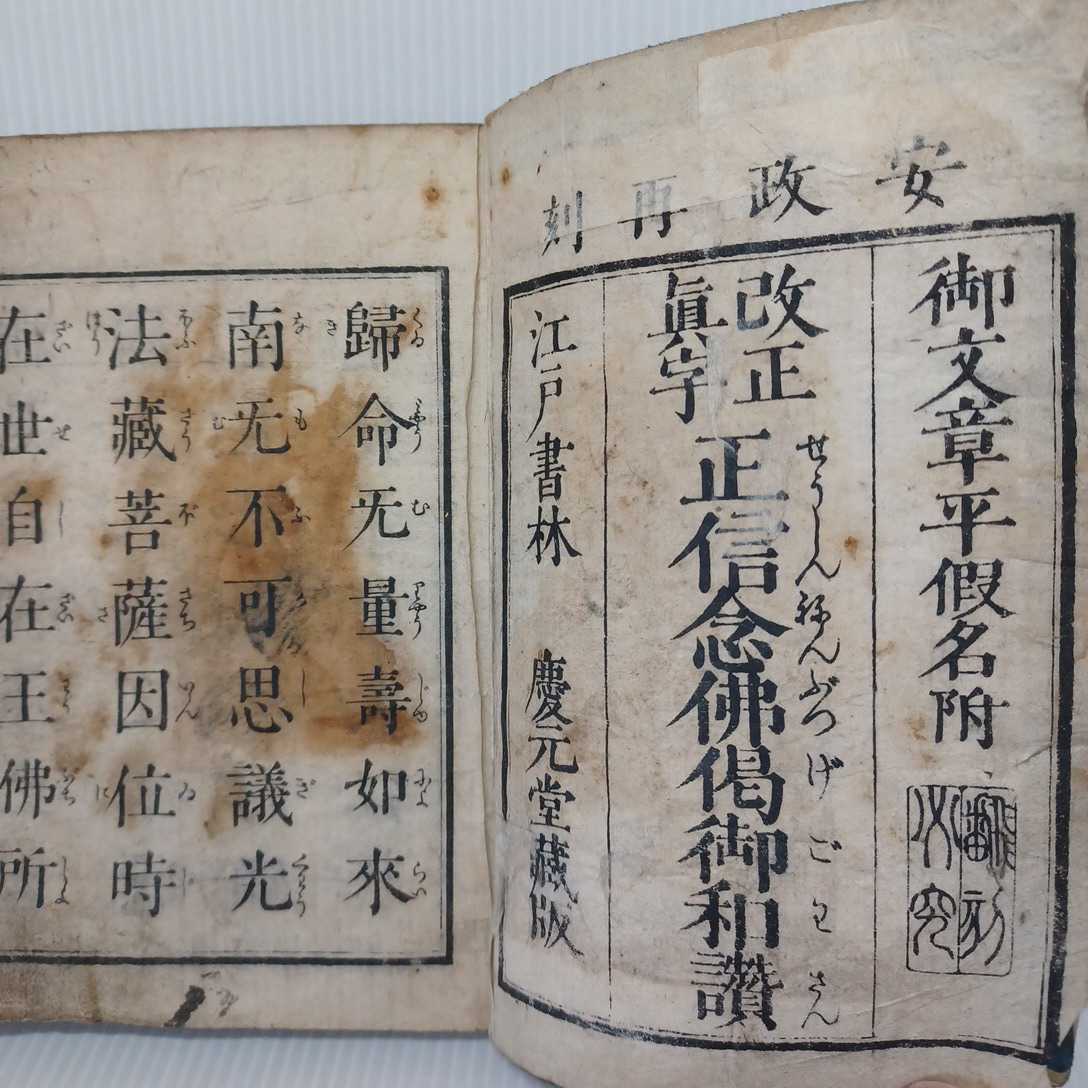 安政再刻
御文章平假名附
翻刻必究
改正
眞字
正信念佛偈御和讚
せうしんねんぶつげごわさん
江戸書林 慶元堂藏版
歸命无量壽如來
南无不可思議光
法藏菩薩因位時
在世自在王佛所